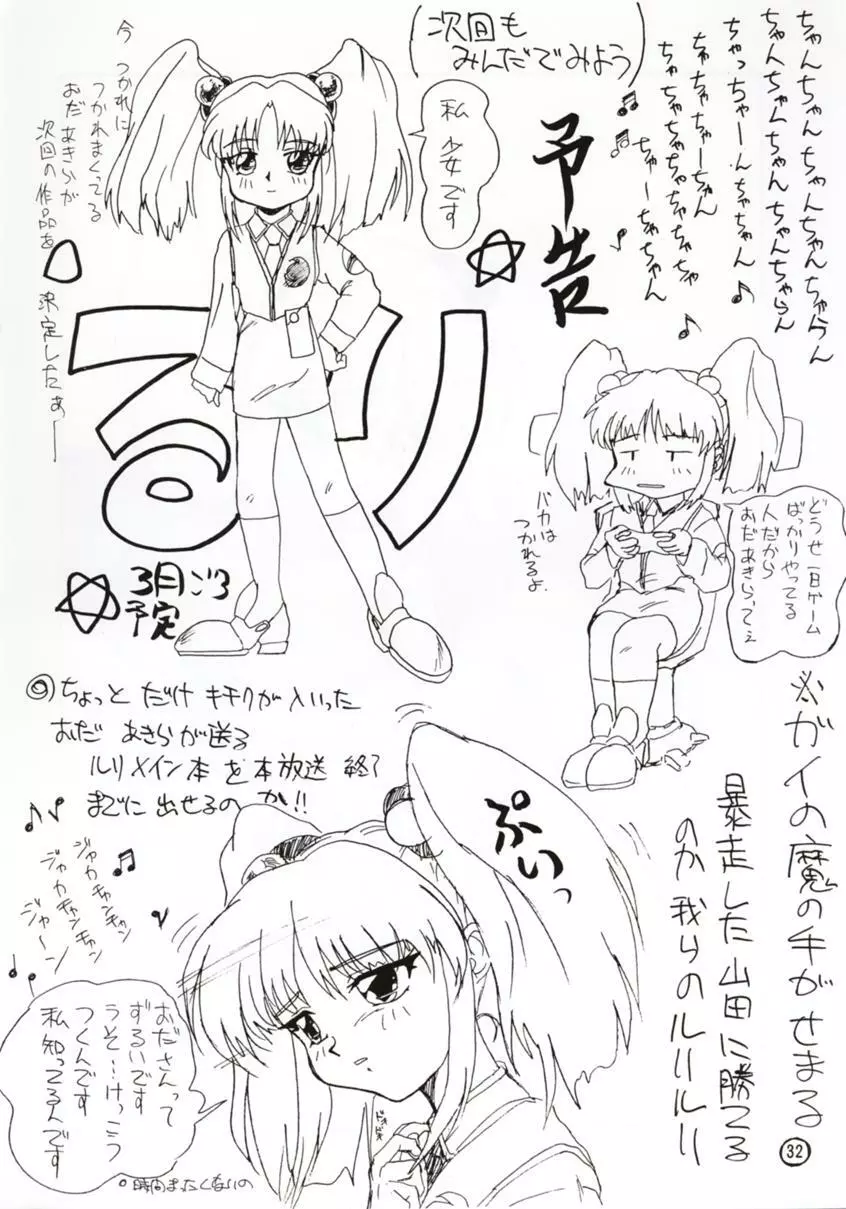 ちゃんちゃん ちゃんちゃんちゃらん
ちゃんちゃんちゃん ちゃんちゃらん
ちゃっちゃーんちゃちゃん♪
ちゃちゃちゃーちゃん
ちゃちゃちゃちゃちゃちゃちゃ
ちゃーちゃちゃん
(次回も
みんだでみよう)
予告
私
少女です
今 つかれに
つかれまくってる
おだ あきらが
次回の作品を
決定したぁー
るり
3月ごろ
予定
どうせ一日ゲーム
ばっかりやってる
人だから
おだあきらってぇ
バカは
つかれるよ.
◎ちょっと だけ キチクが入いった
おだ あきらが送る
ルリメイン本を本放送 終了
までに 出せるの か!!
※ガイの魔の手がせまる
暴走した山田に勝てる
のか 我らのルリルリ
ぷいっ
ジャカキャンキャン
ジャカキャンキャン
ジャーン
おださんって
ずるいです
うそ…けっこう
つくんです
私知ってるんです
○時間まったくないの
32